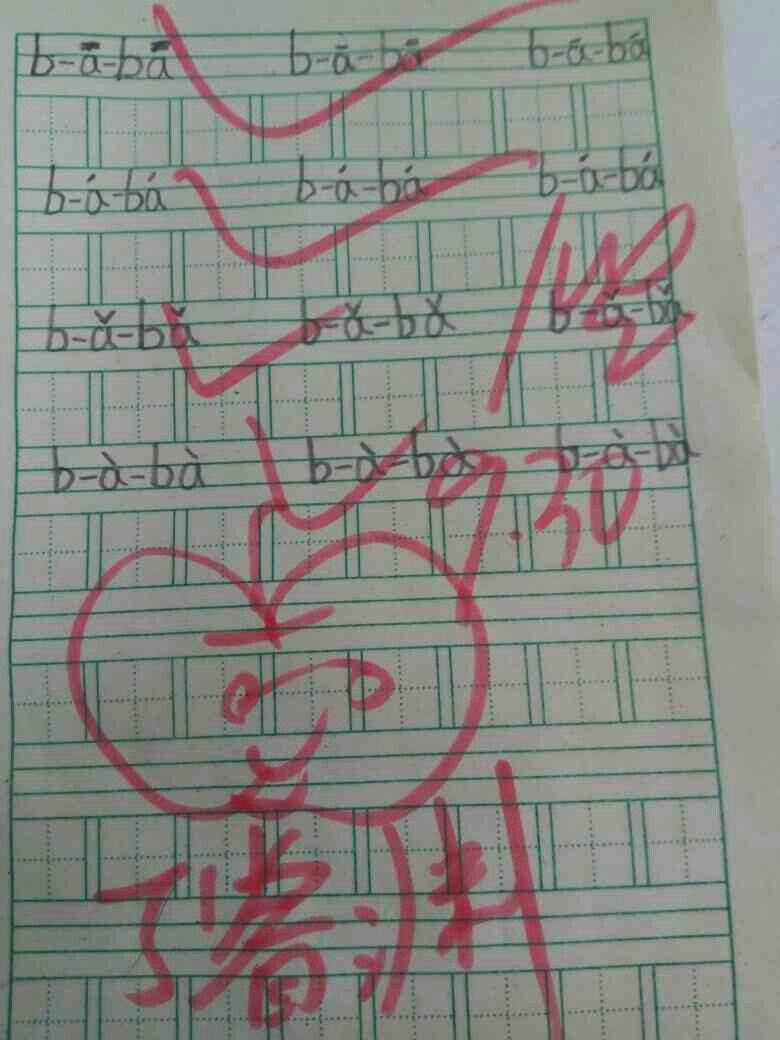 b-ā-bā b-ā-bā b-ā-bā
b-á-bá b-á-bá b-á-bá
b-ǎ-bǎ b-ǎ-bǎ b-ǎ-bǎ
b-à-bà b-à-bà b-à-bà
9.30